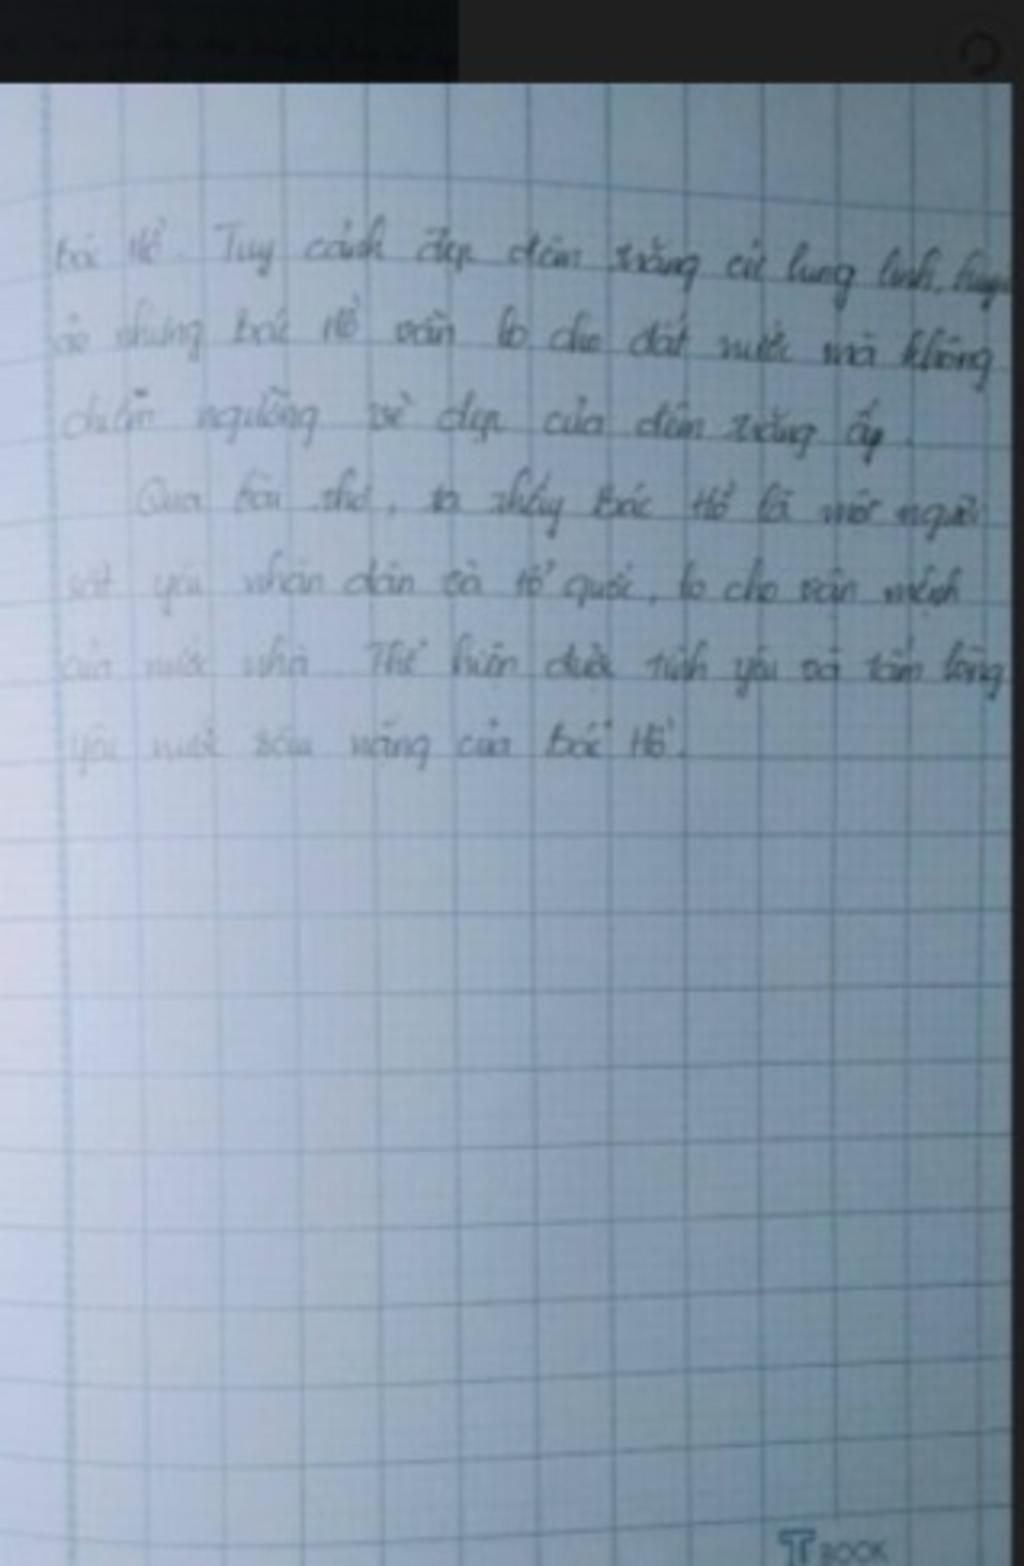 Bác Hồ. Tuy cảnh đẹp đêm trăng cứ lung linh, huyền
ảo nhưng Bác Hồ vẫn lo cho đất nước mà không
chiêm ngưỡng vẻ đẹp của đêm trăng ấy.
Qua bài thơ, ta thấy Bác Hồ là một người
rất yêu nhân dân và tổ quốc, lo cho vận mệnh
của nước nhà. Thể hiện được tình yêu và tấm lòng
yêu nước sâu nặng của Bác Hồ.
T BOOK